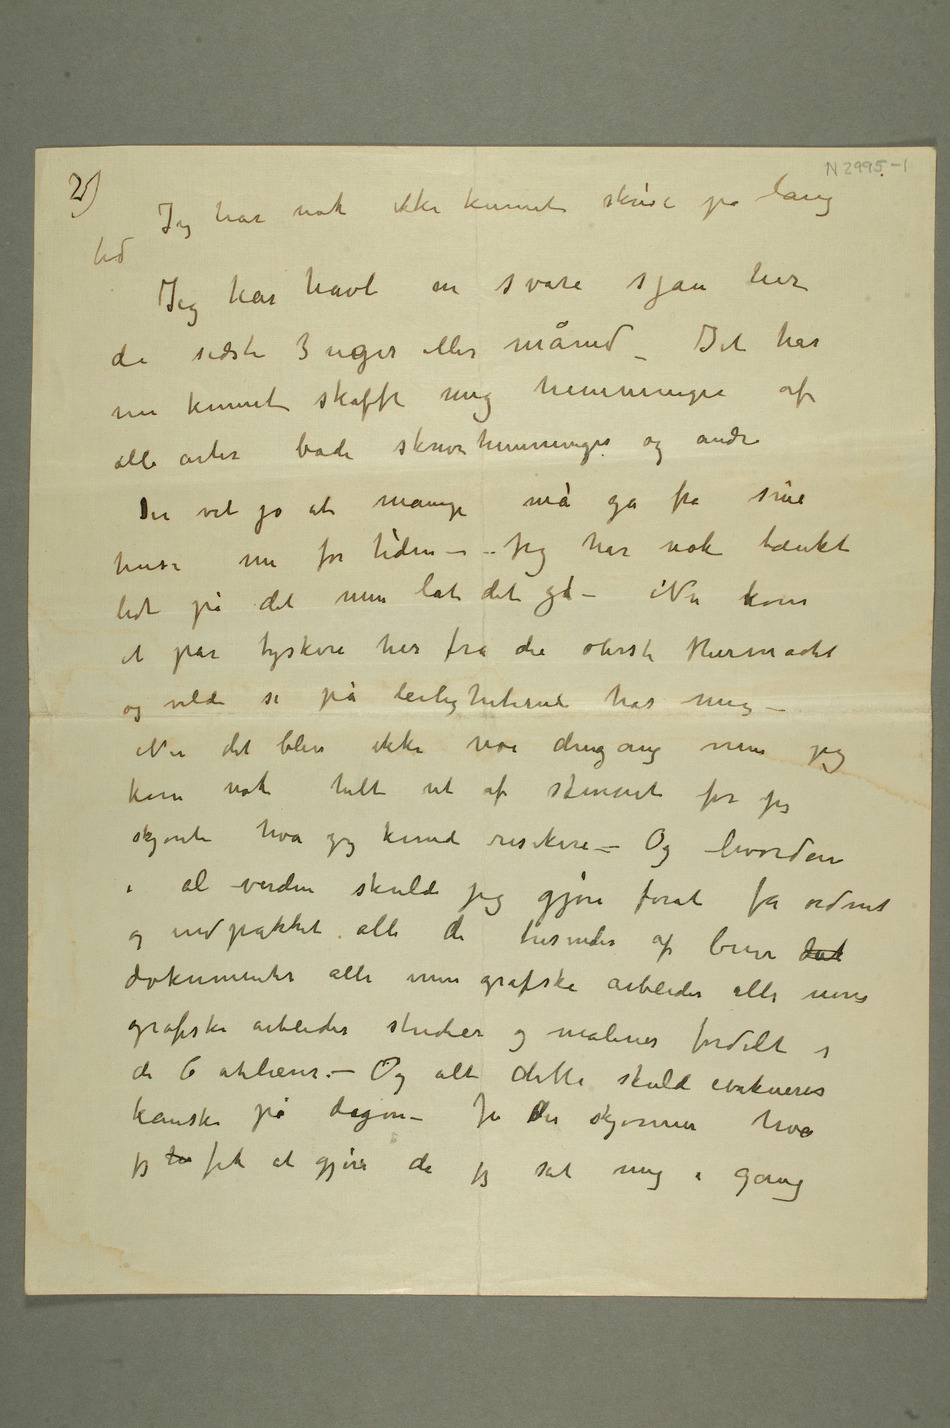 N 2995-1
2)
Jeg har nok ikke kunnet skrive på lang
tid
Jeg har havt en svare sjau her
de sidste 3 uger eller måned – Det har
nu kunnet skaffe mig hemninger af
alle arter både skrivehemninger og andre
Du vet jo at mange må gå fra sine
huse nu for tiden – – Jeg har nok tænkt
lidt på det men lat det gå – Nu kom
et par tyskere her fra den øverste
og vilde se på leilighederne hos mig –
Nu det blev ikke noe dengang men jeg
kom nok helt ut af skinnet for jeg
skjønte hva jeg kunde risikere – Og hvordan
i al verden skulde jeg gjøre forat få ordnet
og indpakket alle de tusinder af breve dok
dokumenter alle mine grafiske arbeider alle mine
grafiske arbeider studier og malerier fordelt i
de 6 atelierer. – Og alt dette skulde evakueres
kanske på dagen – Ja Du skjønner hva
jeg ha fik at gjøre da jeg sat mig i gang